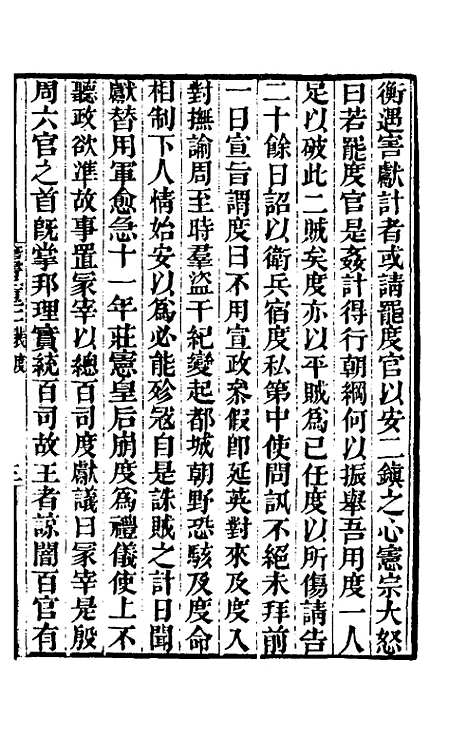 衡遇害獻計者或請罷度官以安二鎮之心憲宗大怒
曰若罷度官是姦計得行朝綱何以振舉吾用度一人
足以破此二賊矣度亦以平賊為已任度以所傷請告
二十餘日詔以衛兵宿度私第中使問訊不絕未拜前
一日宣旨謂度曰不用宣政參假卽延英對來及度入
對撫諭周至時羣盜干紀變起都城朝野恐駭及度命
相制下人情始安以為必能殄冦自是誅賊之計日聞
獻替用軍愈急十一年莊憲皇后崩度為禮儀使上不
聽政欲準故事置冢宰以總百司度獻議曰冢宰是殷
周六官之首旣掌邦理實統百司故王者諒闇百官有
裴度